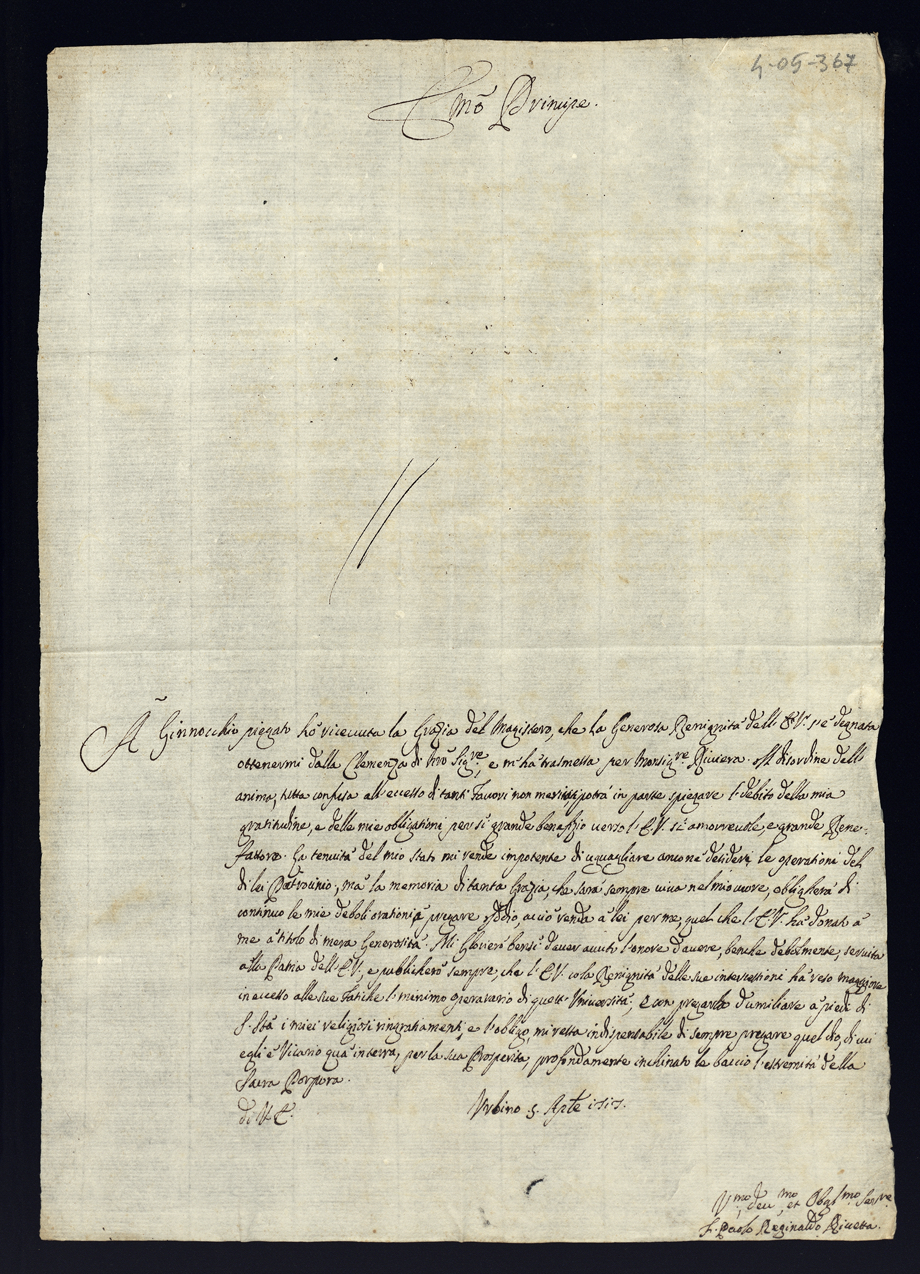 4-05-367
Emo Principe.
A Ginnocchio piegato hò riceuuta la Grazia del Magistero, che la Generosa Benignità dell' E.V. s'è degnata
ottenermi dalla Clemenza di Nro Sigre, e m'hà trasmessa per Monsigre Riviera. Il disordine dell'
anima, tutta confusa all'eccesso di tanti Fauori non meritati potrà in parte spiegare l'debito della mia
gratitudine, e delle mie obligationi per sì grande beneffizio uerso l'E.V. sì amorreuole, e grande Bene-
fattore. La tenuità del mio stato mi rende impotente di uguagliare anco ne desiderj le operationi del
di lei Patrocinio, mà la memoria di tanta Grazia, che sarà sempre uiua nel mio cuore, obligherà di
continuo le mie deboli orationi à pregare Iddio, acciò renda à lei per me, quel che l'E.V. hà donato à
me à titolo di mera Generosità. Mi Glorierò bensì d'auer auuto l'onore d'auere, benche debolmente, seruita
alla Patria dell'E.V., e publicherò sempre, che l'E.V. cola Benignità delle sue intercessioni hà reso maggiore
in eccesso alle sue Fatiche l'minimo operarario di quest' Vniuersità, e con pregarla d'umiliare a piedi di
S. Stà i miei religiosi ringratiamenti, e l'obligo, mi resta indispensabile di sempre pregare quel dio, di cui
egli è Vicario quà in terra, per la sua Prosperità, profondamente inchinato le baccio l'estremità della
Sacra Porpora.
di V.E. Vrbino 5. Aple 1515.
Vmo, deu.mo, et Obglmo Serure
F. Paolo Reginaldo Riuetta.